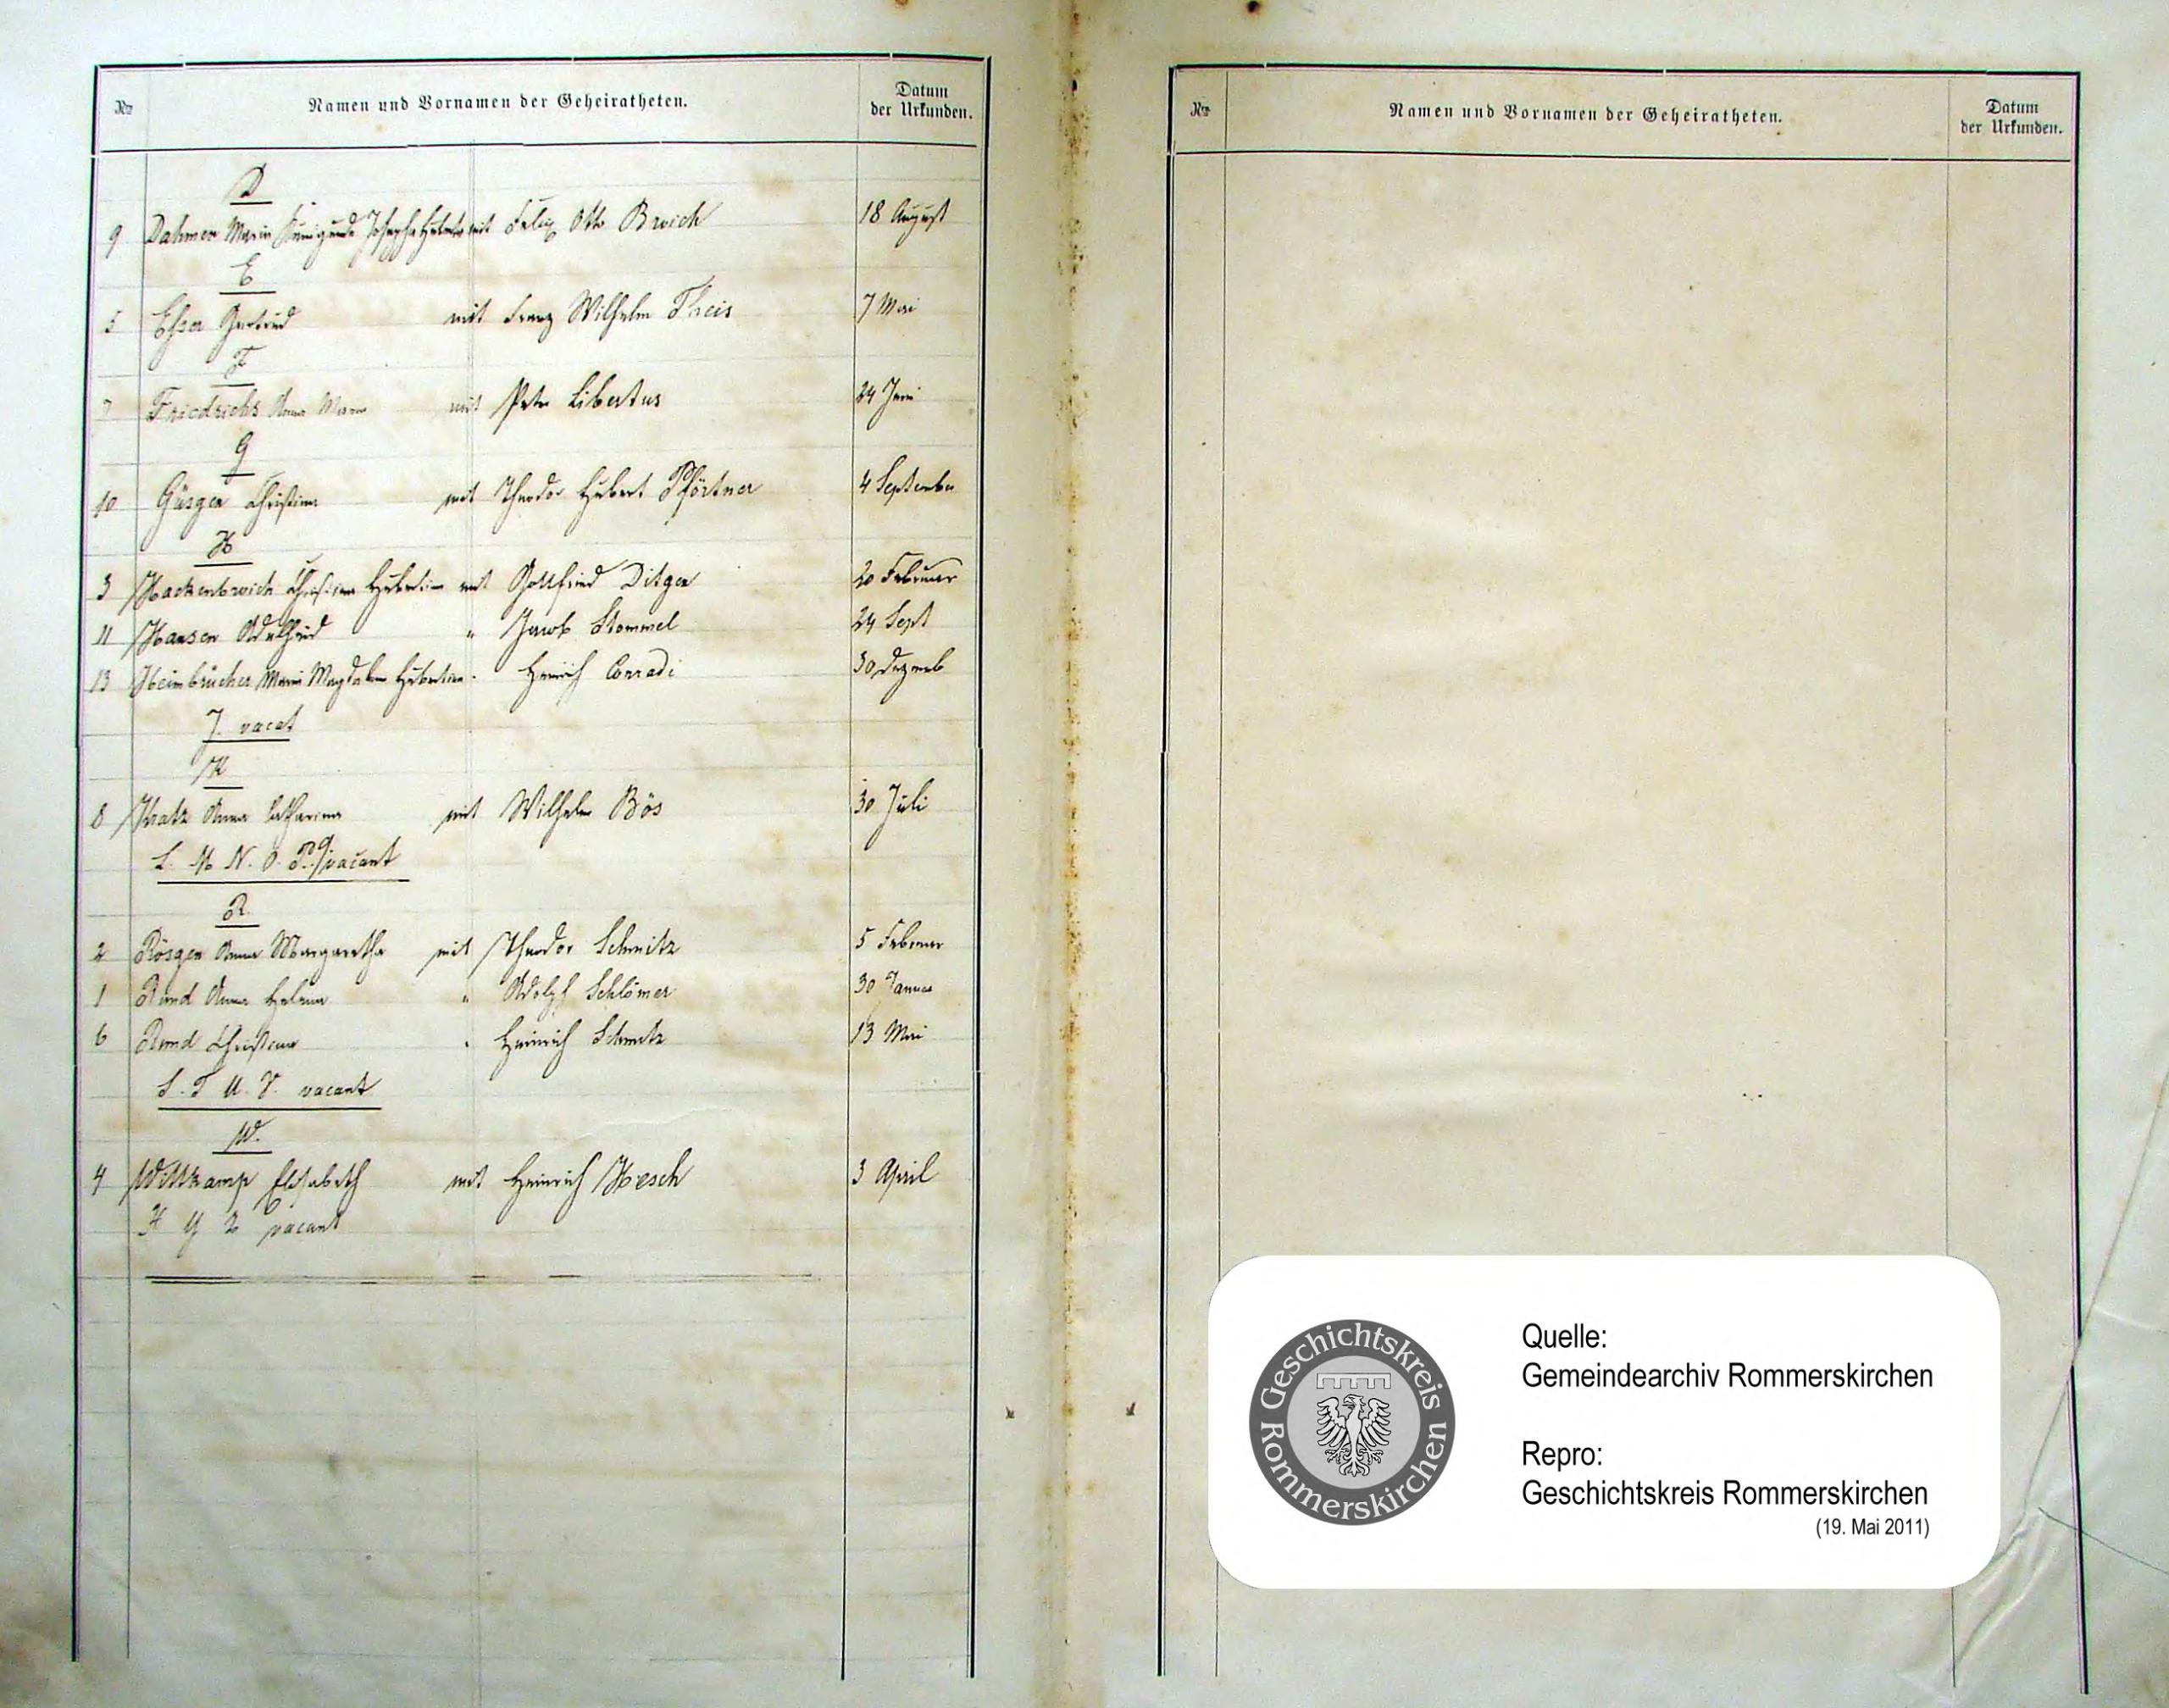 Nro
Namen und Vornamen der Geheiratheten.
Datum
der Urkunden.
D
9 Dahmen Maria Kunigunde Josepha Huberta mit Felix Otto Broich 18 August
E
5 Esser Gertrud mit Franz Wilhelm Theis 7 Mai
F
7 Friedrichs Anna Maria mit Peter Libertus 24 Juni
G
10 Güsgen Christina mit Theodor Hubert Pförtner 4 September
H
3 Hackenbroich Christina Hubertina mit Gottfried Ditgen 20 Februar
11 Hansen Adelheid " Jacob Stommel 24 Sept
13 Heimbrücher Maria Magdalena Hubertina " Heinrich Conradi 30 Dezemb
J. vacat
K
8 Kratz Anna Catharina mit Wilhelm Bös 30 Juli
L. M N. O. P. Q. vacant
R.
2 Rösgen Anna Margaretha mit Theodor Schmitz 5 Februar
1 Rond Anna Helena " Adolph Schlömer 30 Januar
6 Rond Christina " Heinrich Schmitz 13 Mai
S. T U. V. vacant
W.
4 Wittkamp Elisabeth mit Heinrich Hesch 3 April
X Y Z vacant
Nro
Namen und Vornamen der Geheiratheten.
Datum
der Urkunden.
Geschichtskreis Rommerskirchen
Quelle:
Gemeindearchiv Rommerskirchen
Repro:
Geschichtskreis Rommerskirchen
(19. Mai 2011)